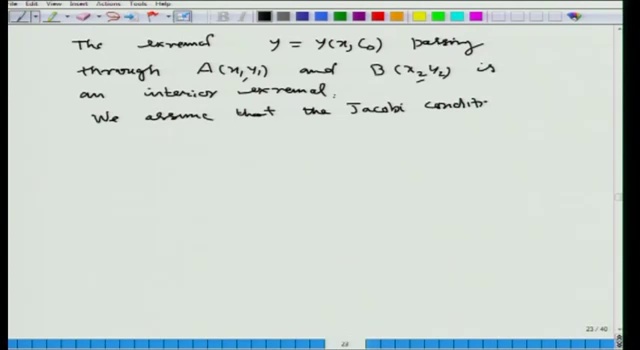 Edit View Insert Actions Tools Help
The exremal y = y(x, C₀) passing
through A(x₁, y₁) and B(x₂, y₂) is
an interior exremal.
We assume that the Jacobi conditi
23 / 40
23